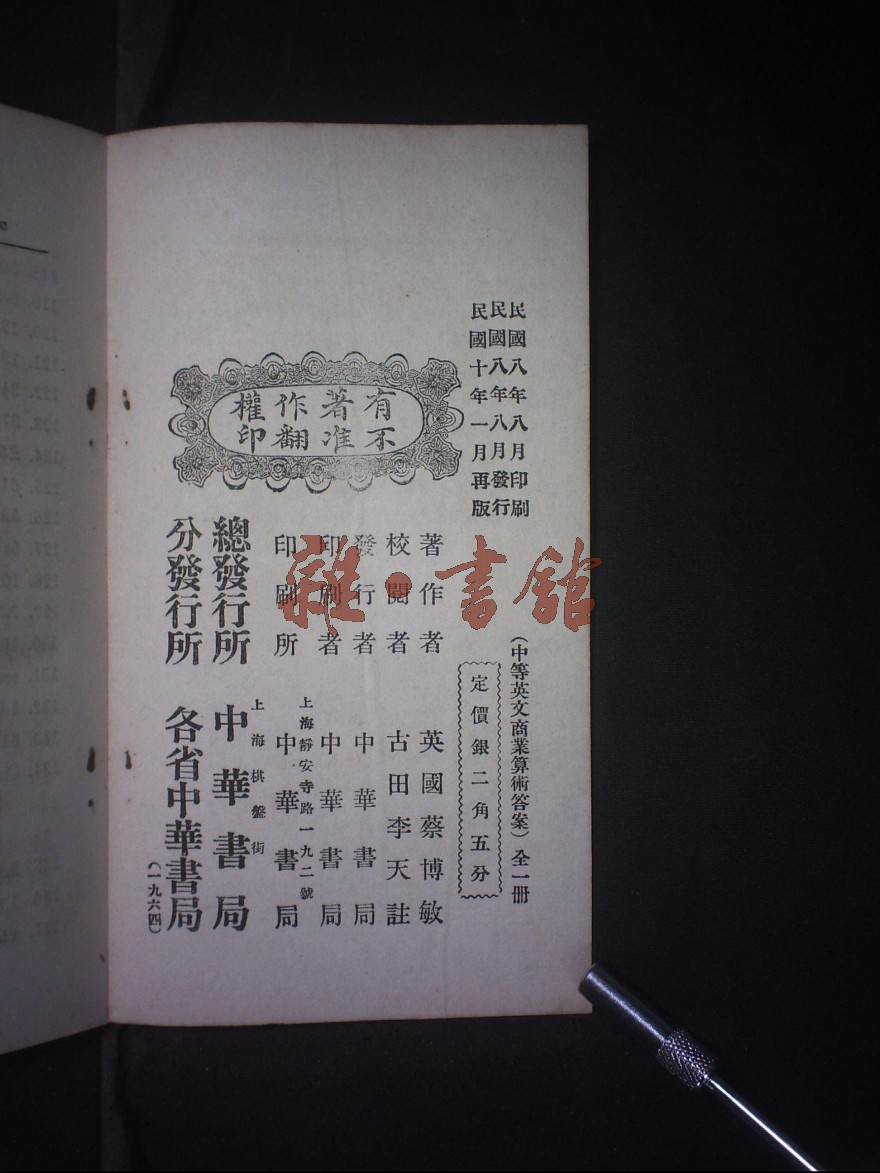 民國八年八月印刷
民國八年八月發行
民國十年一月再版
(中等英文商業算術答案)全一册
定價銀二角五分
有著作權
不准翻印
著作者 英國蔡博敏
校閱者 古田李天註
發行者 中華書局
印刷者 中華書局
上海靜安寺路一九二號
印刷所 中華書局
上海棋盤街
總發行所 中華書局
分發行所 各省中華書局
(一九六四)
雜·書館